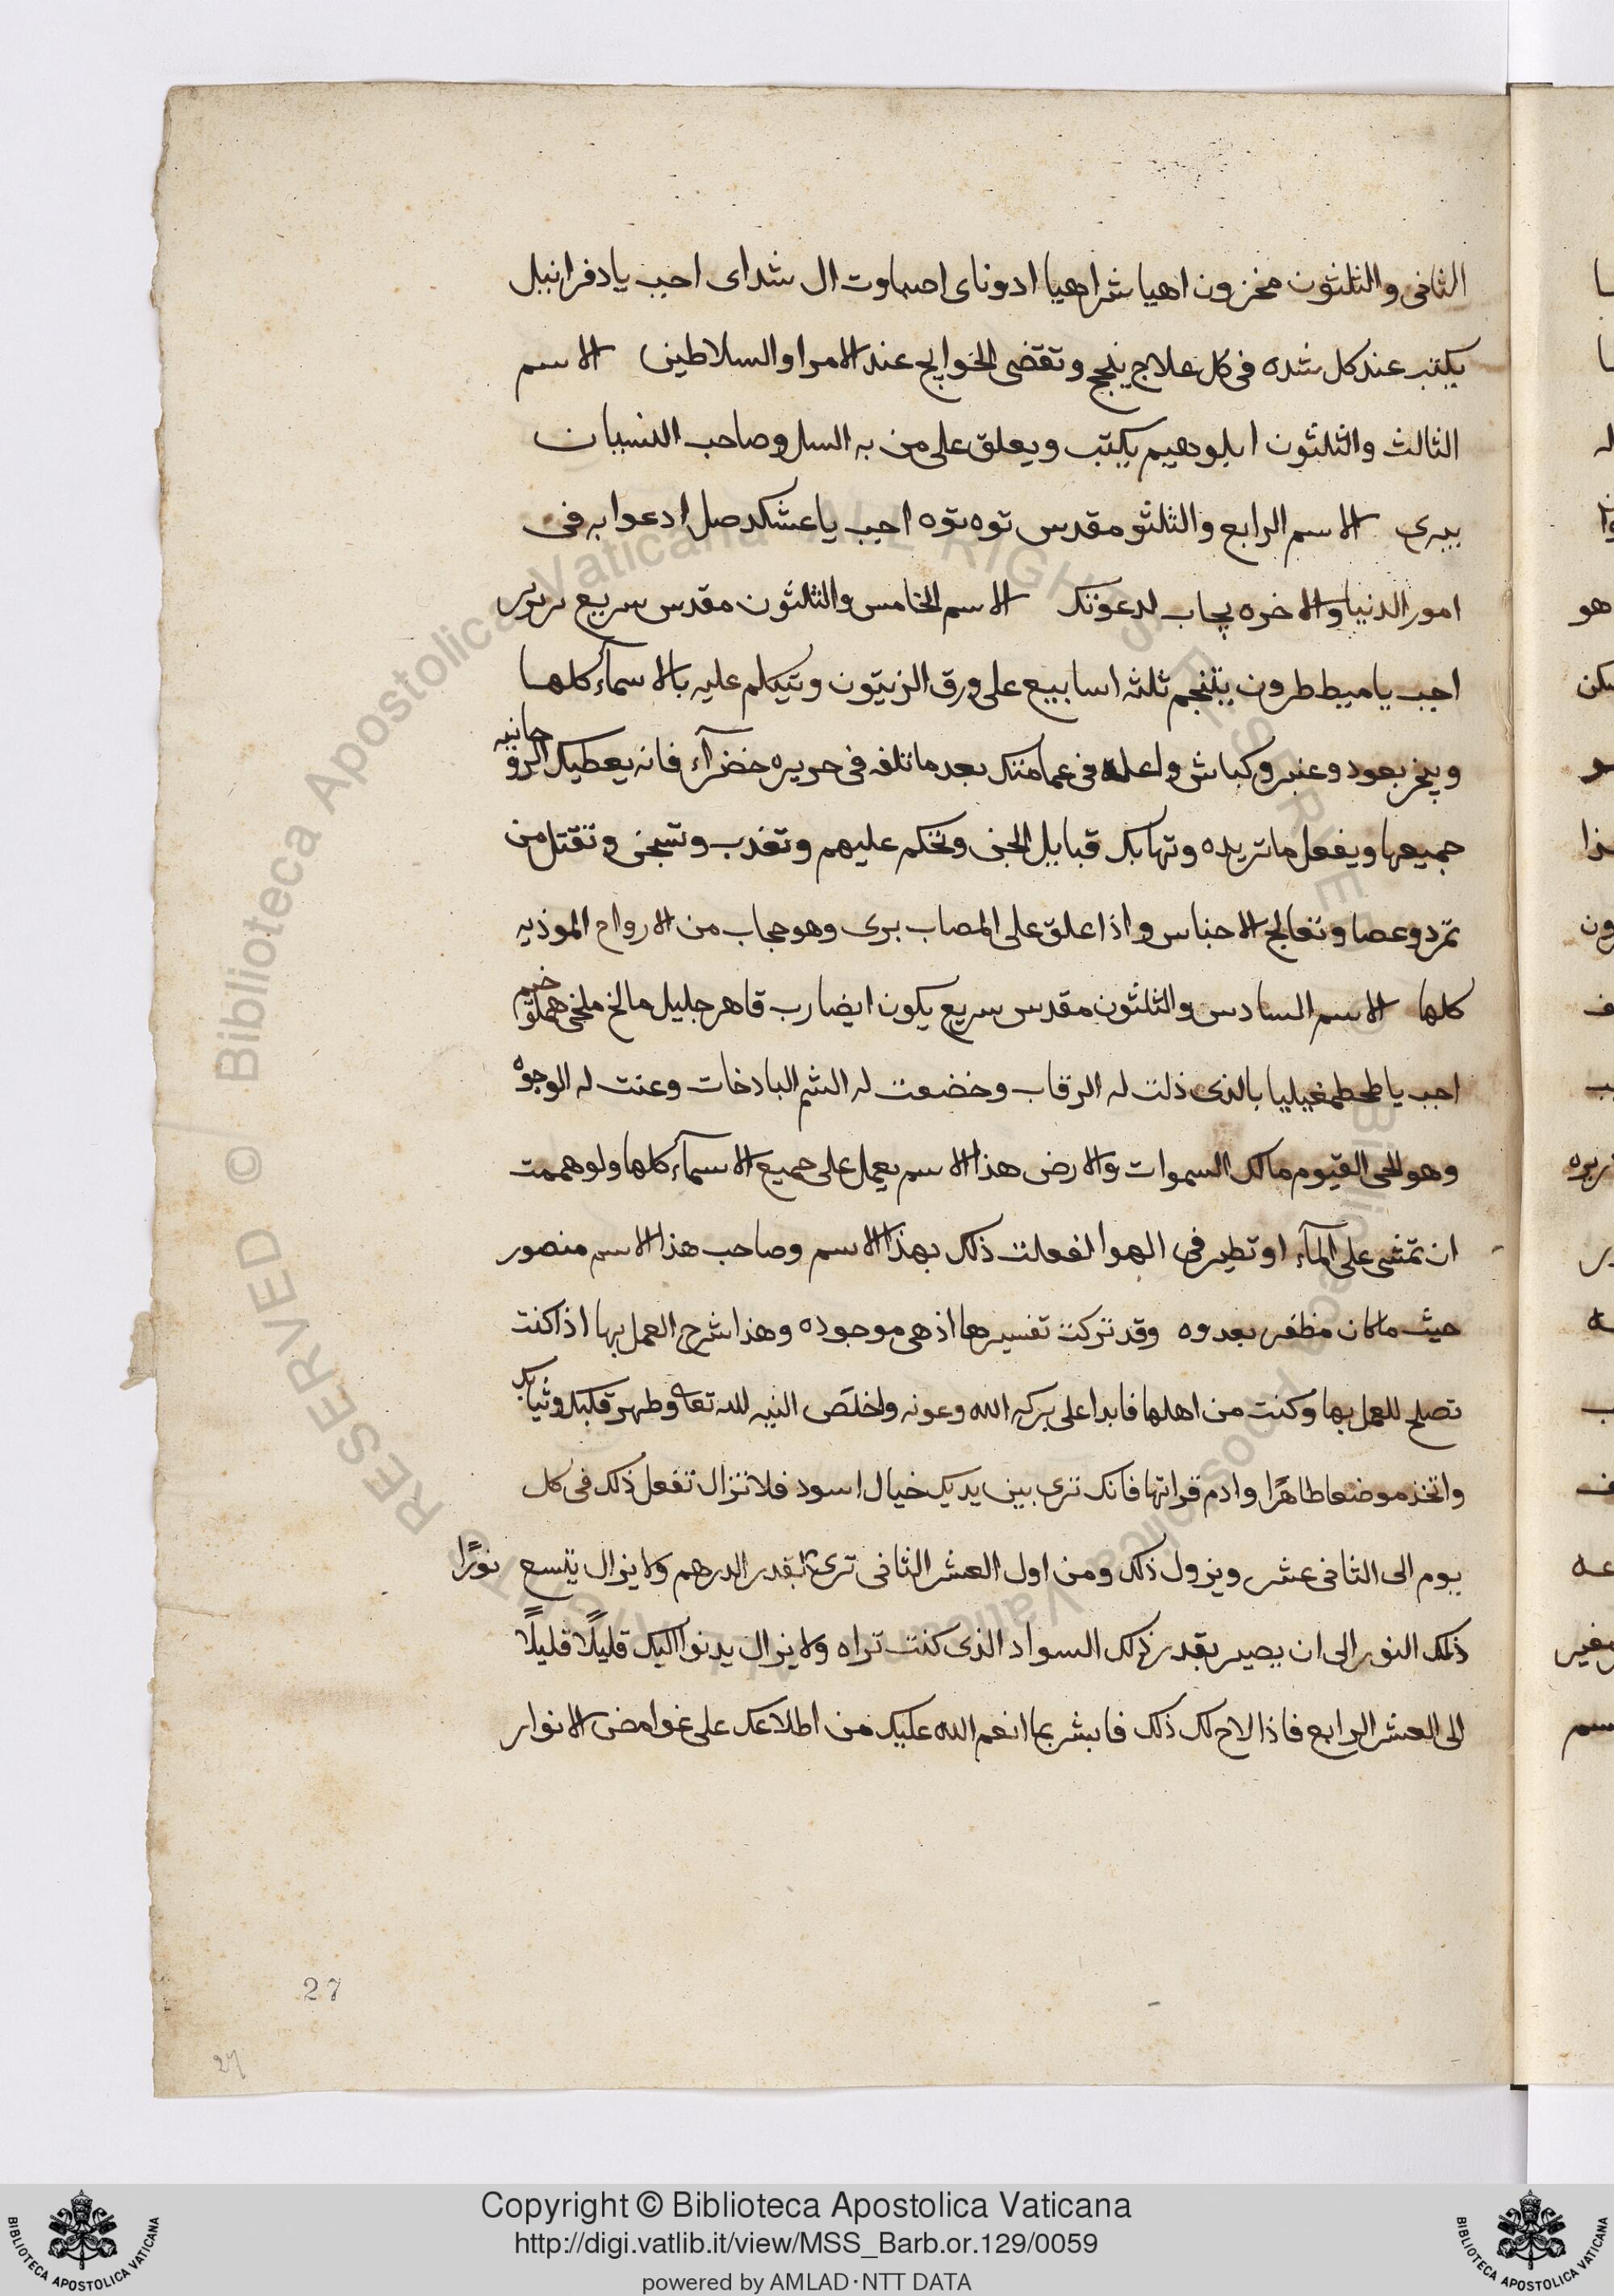 الثانى والثلثون مخزون اهيا شراهيا ادوناى اصباوت ال شداى اجب يا دفرانيل
يكتب عند كل شده فى كل علاج ينجح وتقضى الحوايج عند الامرا والسلاطين الاسم
الثالث والثلثون ايلوهيم يكتب ويعلق على من به السل وصاحب النسيان
يبرى الاسم الرابع والثلثو مقدس توه توه اجب يا ادعوا به فى
امور الدنيا والاخره يجاب لدعوتك الاسم الخامس والثلثون مقدس سريع
اجب يا ميططرون يتنجم ثلثه اسابيع على ورق الزيتون وتتكلم عليه بالاسمآء كلها
ويبخر بعود وعنبر وكباش واعله فى عمامتك بعد ما تلفه فى حريره خضرآء فانه يعطيك الروحانيه
جميعها ويفعل ما تريده وتهابك قبايل الجن وتحكم عليهم وتعذب وتسجن وتقتل من
تمرد وعصا وتعالج الاجناس واذا علق على المصاب برى وهو حجاب من الارواح الموذيه
كلها الاسم السادس والثلثون مقدس سريع يكون ايضا رب قاهر جليل مالخ ملخى
اجب يا بالذى ذلت له الرقاب وخضعت له الشم الباذخات وعنت له الوجوه
وهو الحى القيوم مالك السموات والارض هذا الاسم يعمل على جميع الاسمآء كلها ولو هممت
ان تمشى على المآء او تطير فى الهوا لفعلت ذلك بهذا الاسم وصاحب هذا الاسم منصور
حيث ما كان مظفر بعدوه وقد تركت تفسيرها اذ هى موجوده وهذا شرح العمل بها اذا كنت
تصلح للعمل بها وكنت من اهلها فابدا على بركه الله وعونه واخلص النيه لله تعا وطهر قلبك وثيابك
واتخذ موضعا طاهرًا وادم قراتها فانك ترى بين يديك خيال اسود فلا تزال تفعل ذلك فى كل
يوم الى الثانى عشر ويزول ذلك ومن اول العشر الثانى ترى نورًا بقدر الدرهم ولا يزال يتسع
ذلك النور الى ان يصير بقدر ذلك السواد الذى كنت تراه ولا يزال يدنوا اليك قليلًا قليلًا
الى العشر الرابع فاذا لاح لك ذلك فابشر بما انعم الله عليك من اطلاعك على غوامض الانوار
27
27
Copyright © Biblioteca Apostolica Vaticana
http://digi.vatlib.it/view/MSS_Barb.or.129/0059
powered by AMLAD·NTT DATA